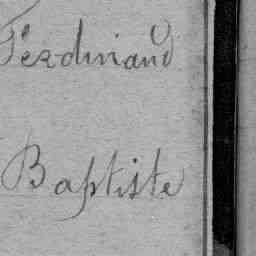 Ferdinand
Baptiste